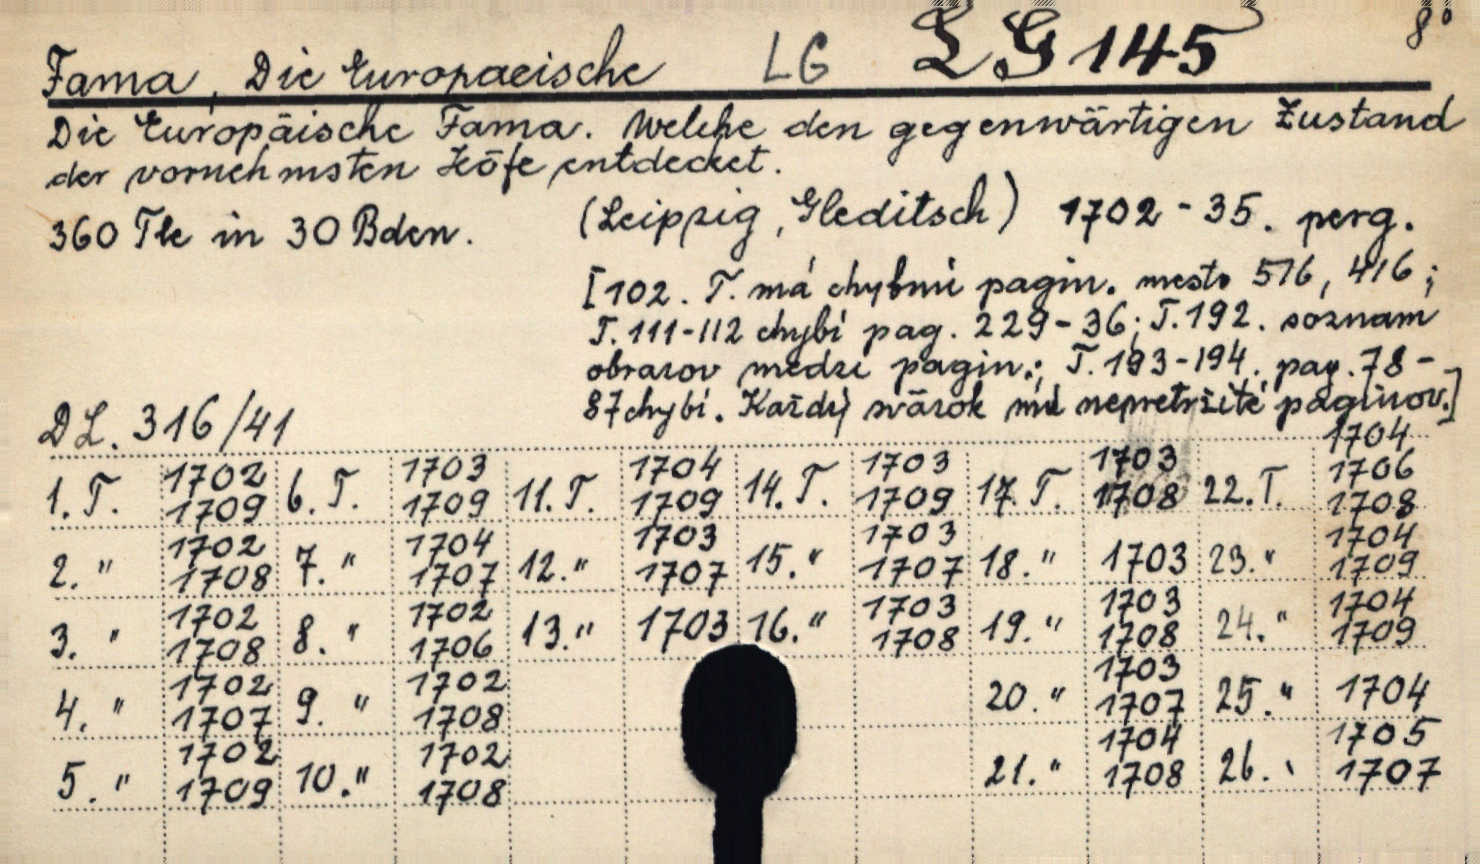 Fama, Die Europaeische LG LG 145 8°
Die Europäische Fama. Welche den gegenwärtigen Zustand
der vornehmsten Höfe entdecket.
360 Tle in 30 Bden. (Leipzig, Gleditsch) 1702-35. perg.
[102. T. má chybnú pagin. mesto 576, 416;
T. 111-112 chybí pag. 229-36; T. 192. soznam
obrazov medzi pagin.; T. 193-194. pag. 78-
87 chybí. Každý svázok má nepretržité paginov.]
DL. 316/41
1704
1. T. 1702 6. T. 1703 11. T. 1704 14. T. 1703 17. T. 1703 22. T. 1706
1709 1709 1709 1709 1708 1708
2. " 1702 7. " 1704 12. " 1703 15. " 1703 18. " 1703 23. " 1704
1708 1707 1707 1707 1709
3. " 1702 8. " 1702 13. " 1703 16. " 1703 19. " 1703 24. " 1704
1708 1706 1708 1708 1709
4. " 1702 9. " 1702 20. " 1703 25. " 1704
1707 1708 1707
5. " 1702 10. " 1702 21. " 1704 26. " 1705
1709 1708 1708 1707